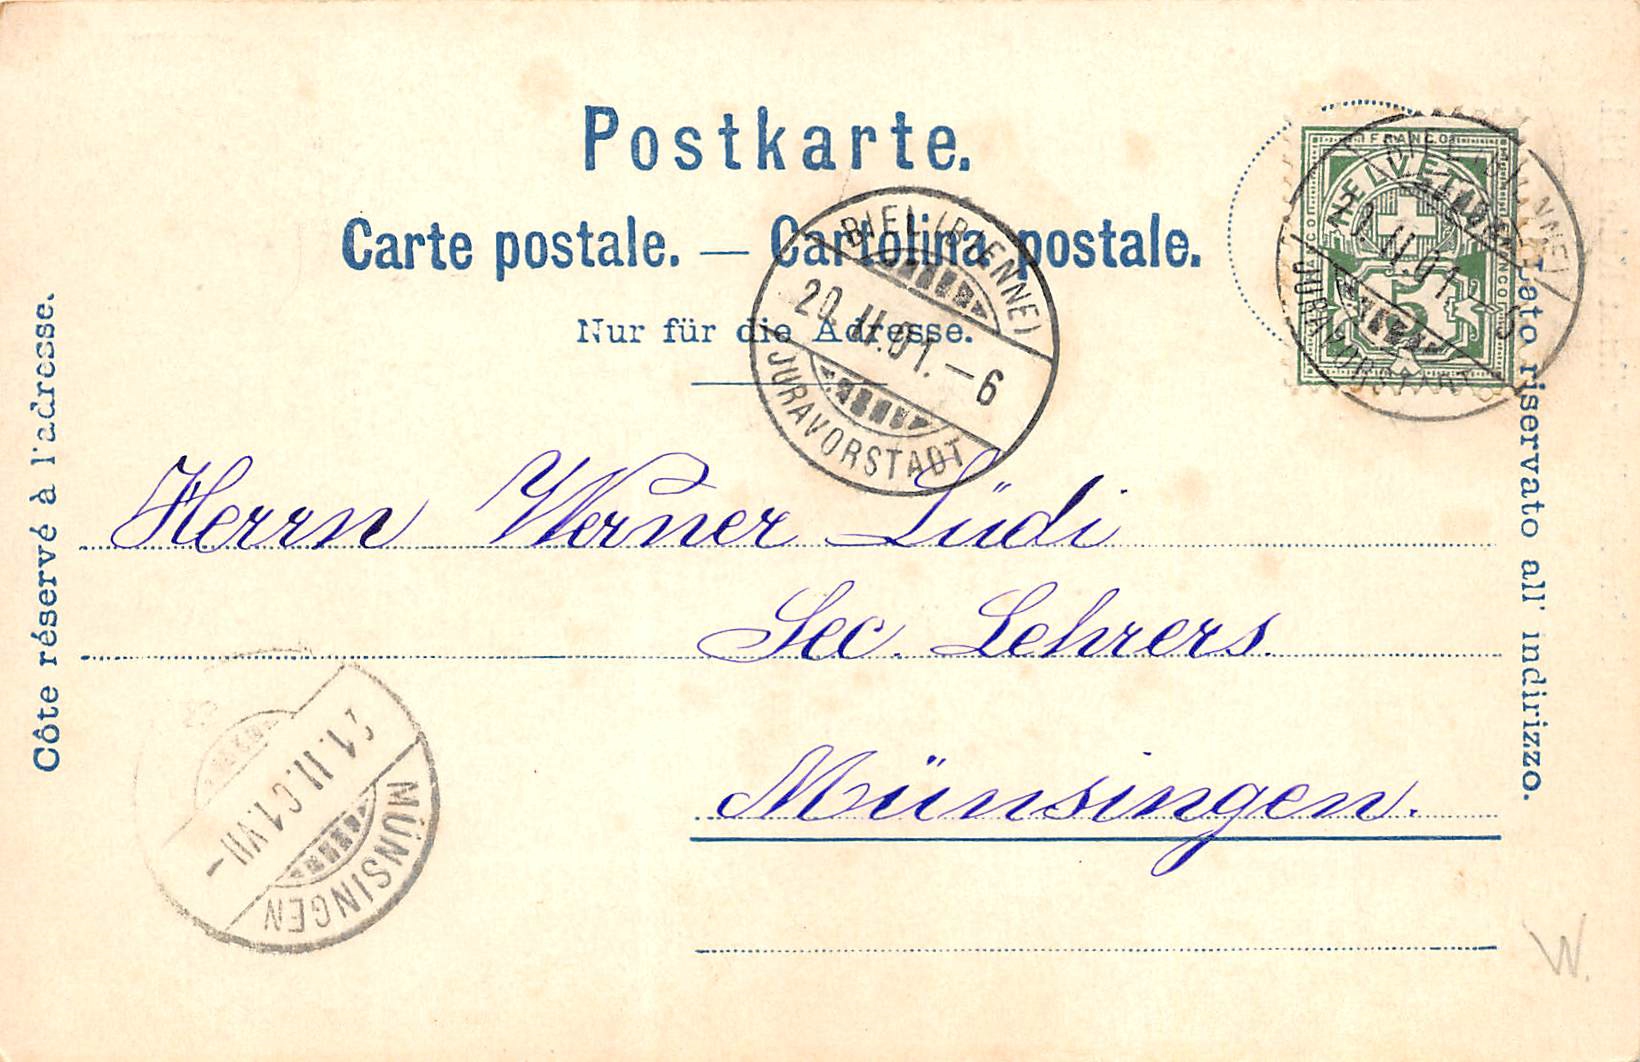 Postkarte.
Carte postale. — Cartolina postale.
Nur für die Adresse.
Côte réservé à l'adresse.
Lato riservato all' indirizzo.
FRANCO
HELVETIA
5
BIEL (BIENNE)
20. II. 01. – 6
JURAVORSTADT
BIEL (BIENNE)
20. II. 01. – 5
JURAVORSTADT
Herrn Werner Lüdi
Sec. Lehrers.
Münsingen.
21. II. 01. VII –
MÜNSINGEN
W.